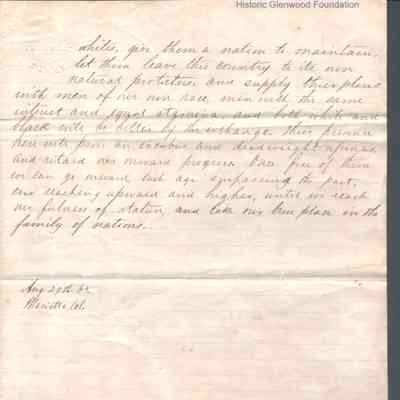 Historic Glenwood Foundation
whites, give them a nation to maintain,
let them leave this country to its own
natural protectors and supply their places
with men of our own race, men with the same
interest and equal stamina and both white and
black will be better by the exchange. Their presence
here will prove an incubus and dead weight upon us,
and retard our onward progress. Once free of them
we can go onward each age surpassing the past,
ever reaching upward and higher, until we reach
our fulness of stature, and take our true place in the
family of nations.
Aug 29th
Marietta